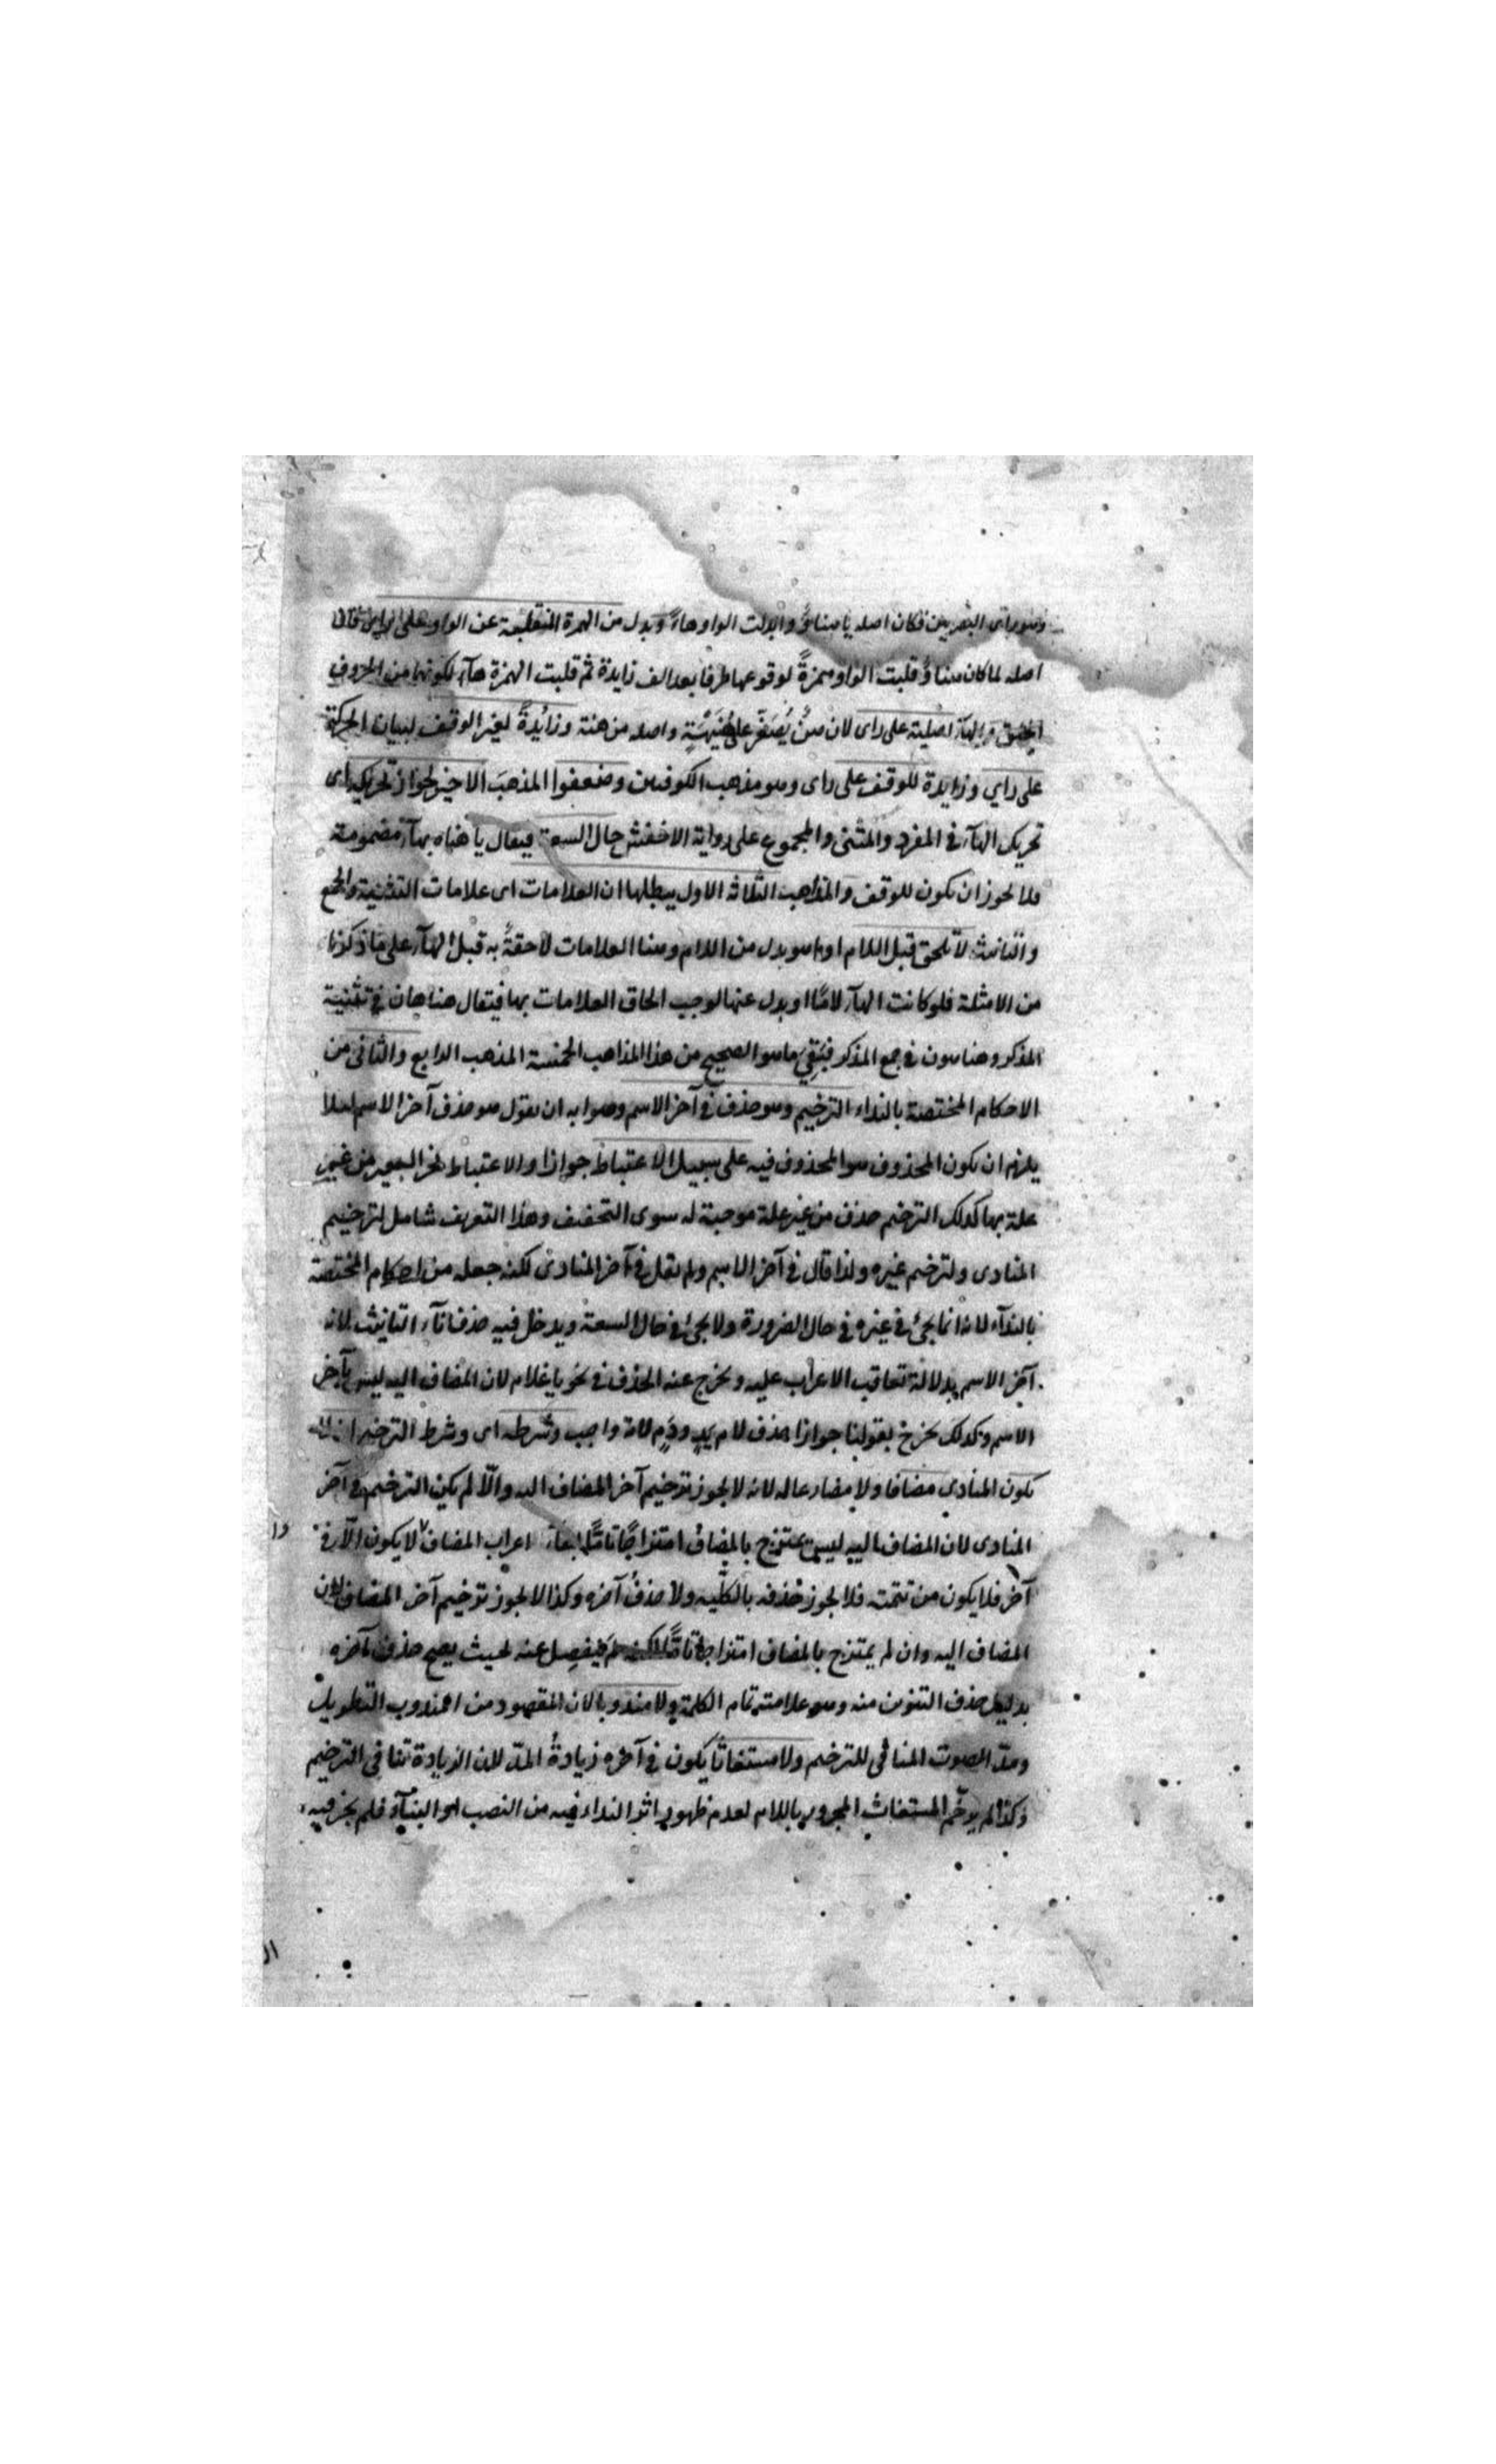 وهو راى البصريين فكان اصله يا هناوُ وابدلت الواو هاءً وبدل من الهمزة المنقلبة عن الواو على راى
اصله لما كان هناوُ قلبت الواو همزةً لوقوعها طرفا بعد الف زايدة ثم قلبت الهمزة هآء لكونها من الحروف
الهآء اصلية على راى لان هنٌ يُصَغَّر على هُنَيْهَةٍ واصله من هنة وزائدةً لغير الوقف لبيان الحركة
على راي وزايدة للوقف على راى وهو مذهب الكوفيين وضعفوا المذهبَ الاخير لجواز تحريكه اى
تحريك الهآء فى المفرد والمثنى والمجموع على رواية الاخفش حال السعة فيقال يا هناه بهآء مضمومة
فلا يجوز ان يكون للوقف والمذاهب الثلاثة الاول يبطلها ان العلامات اى علامات التثنية والجمع
والتانيث لا تلحق قبل اللام او ما هو بدل من اللام وهنا العلامات لاحقةٌ به قبل الهآء على ما ذكرنا
من الامثلة فلو كانت الهآء لامًا او بدل عنها لوجب الحاق العلامات بها فيقال هناهان فى تثنية
المذكر وهناهون فى جمع المذكر فبَقِيَ ما هو الصحيح من هذا المذاهب الخمسة المذهب الرابع والثانى من
الاحكام المختصة بالنداء الترخيم وهو حذف فى آخر الاسم وصوابه ان يقول هو حذف آخر الاسم لئلا
يلزم ان يكون المحذوف هو المحذوف فيه على سبيل الاعتباط جوازا والاعتباط نحر البعير من غير
علة بها كذلك الترخيم حذف من غير علة موجبة له سوى التخفيف وهذا التعريف شامل لترخيم
المنادى ولترخيم غيره ولذا قال فى آخر الاسم ولم يقل فى آخر المنادى لكنه جعله من احكام المختصة
بالندآء لانه انما يجئ فى غيره فى حال الضرورة ولا يجئ فى حال السعة ويدخل فيه حذف تآء التانيث لانه
آخر الاسم بدلالة تعاقب الاعراب عليه ويخرج عنه الحذف فى نحو يا غلام لان المضاف اليه ليس بآخر
الاسم وكذلك يخرج بقولنا جوازا حذف لام يدٍ ودَمٍ لانه واجب وشرطه اى وشرط الترخيم ان لا
يكون المنادى مضافا ولا مضارعا له لانه لا يجوز ترخيم آخر المضاف اليه والّا لم يكن الترخيم فى آخر
المنادى لان المضاف اليه ليس يمتزج بالمضاف امتزاجًا تامًّا اعراب المضاف لا يكون الآ فى
آخر فلا يكون من تتمته فلا يجوز حذفه بالكليه ولا حذفُ آخره وكذا لا يجوز ترخيم آخر المضاف لان
المضاف اليه وان لم يمتزج بالمضاف امتزاجا تامًّا لكنه لم ينفصل عنه بحيث يصح حذف آخره
بدليل حذف التنوين منه وهو علامة تمام الكلمة ولا مندوبا لان المقصود من المندوب التطويل
ومدّ الصوت المنافى للترخيم ولا مستغاثا يكون فى آخره زيادةُ المدّ لان الزيادة تنافى الترخيم
وكذا لم يرخّم المستغاث المجرور باللام لعدم ظهور اثر النداء فيه من النصب او البنآء فلم يجز فيه